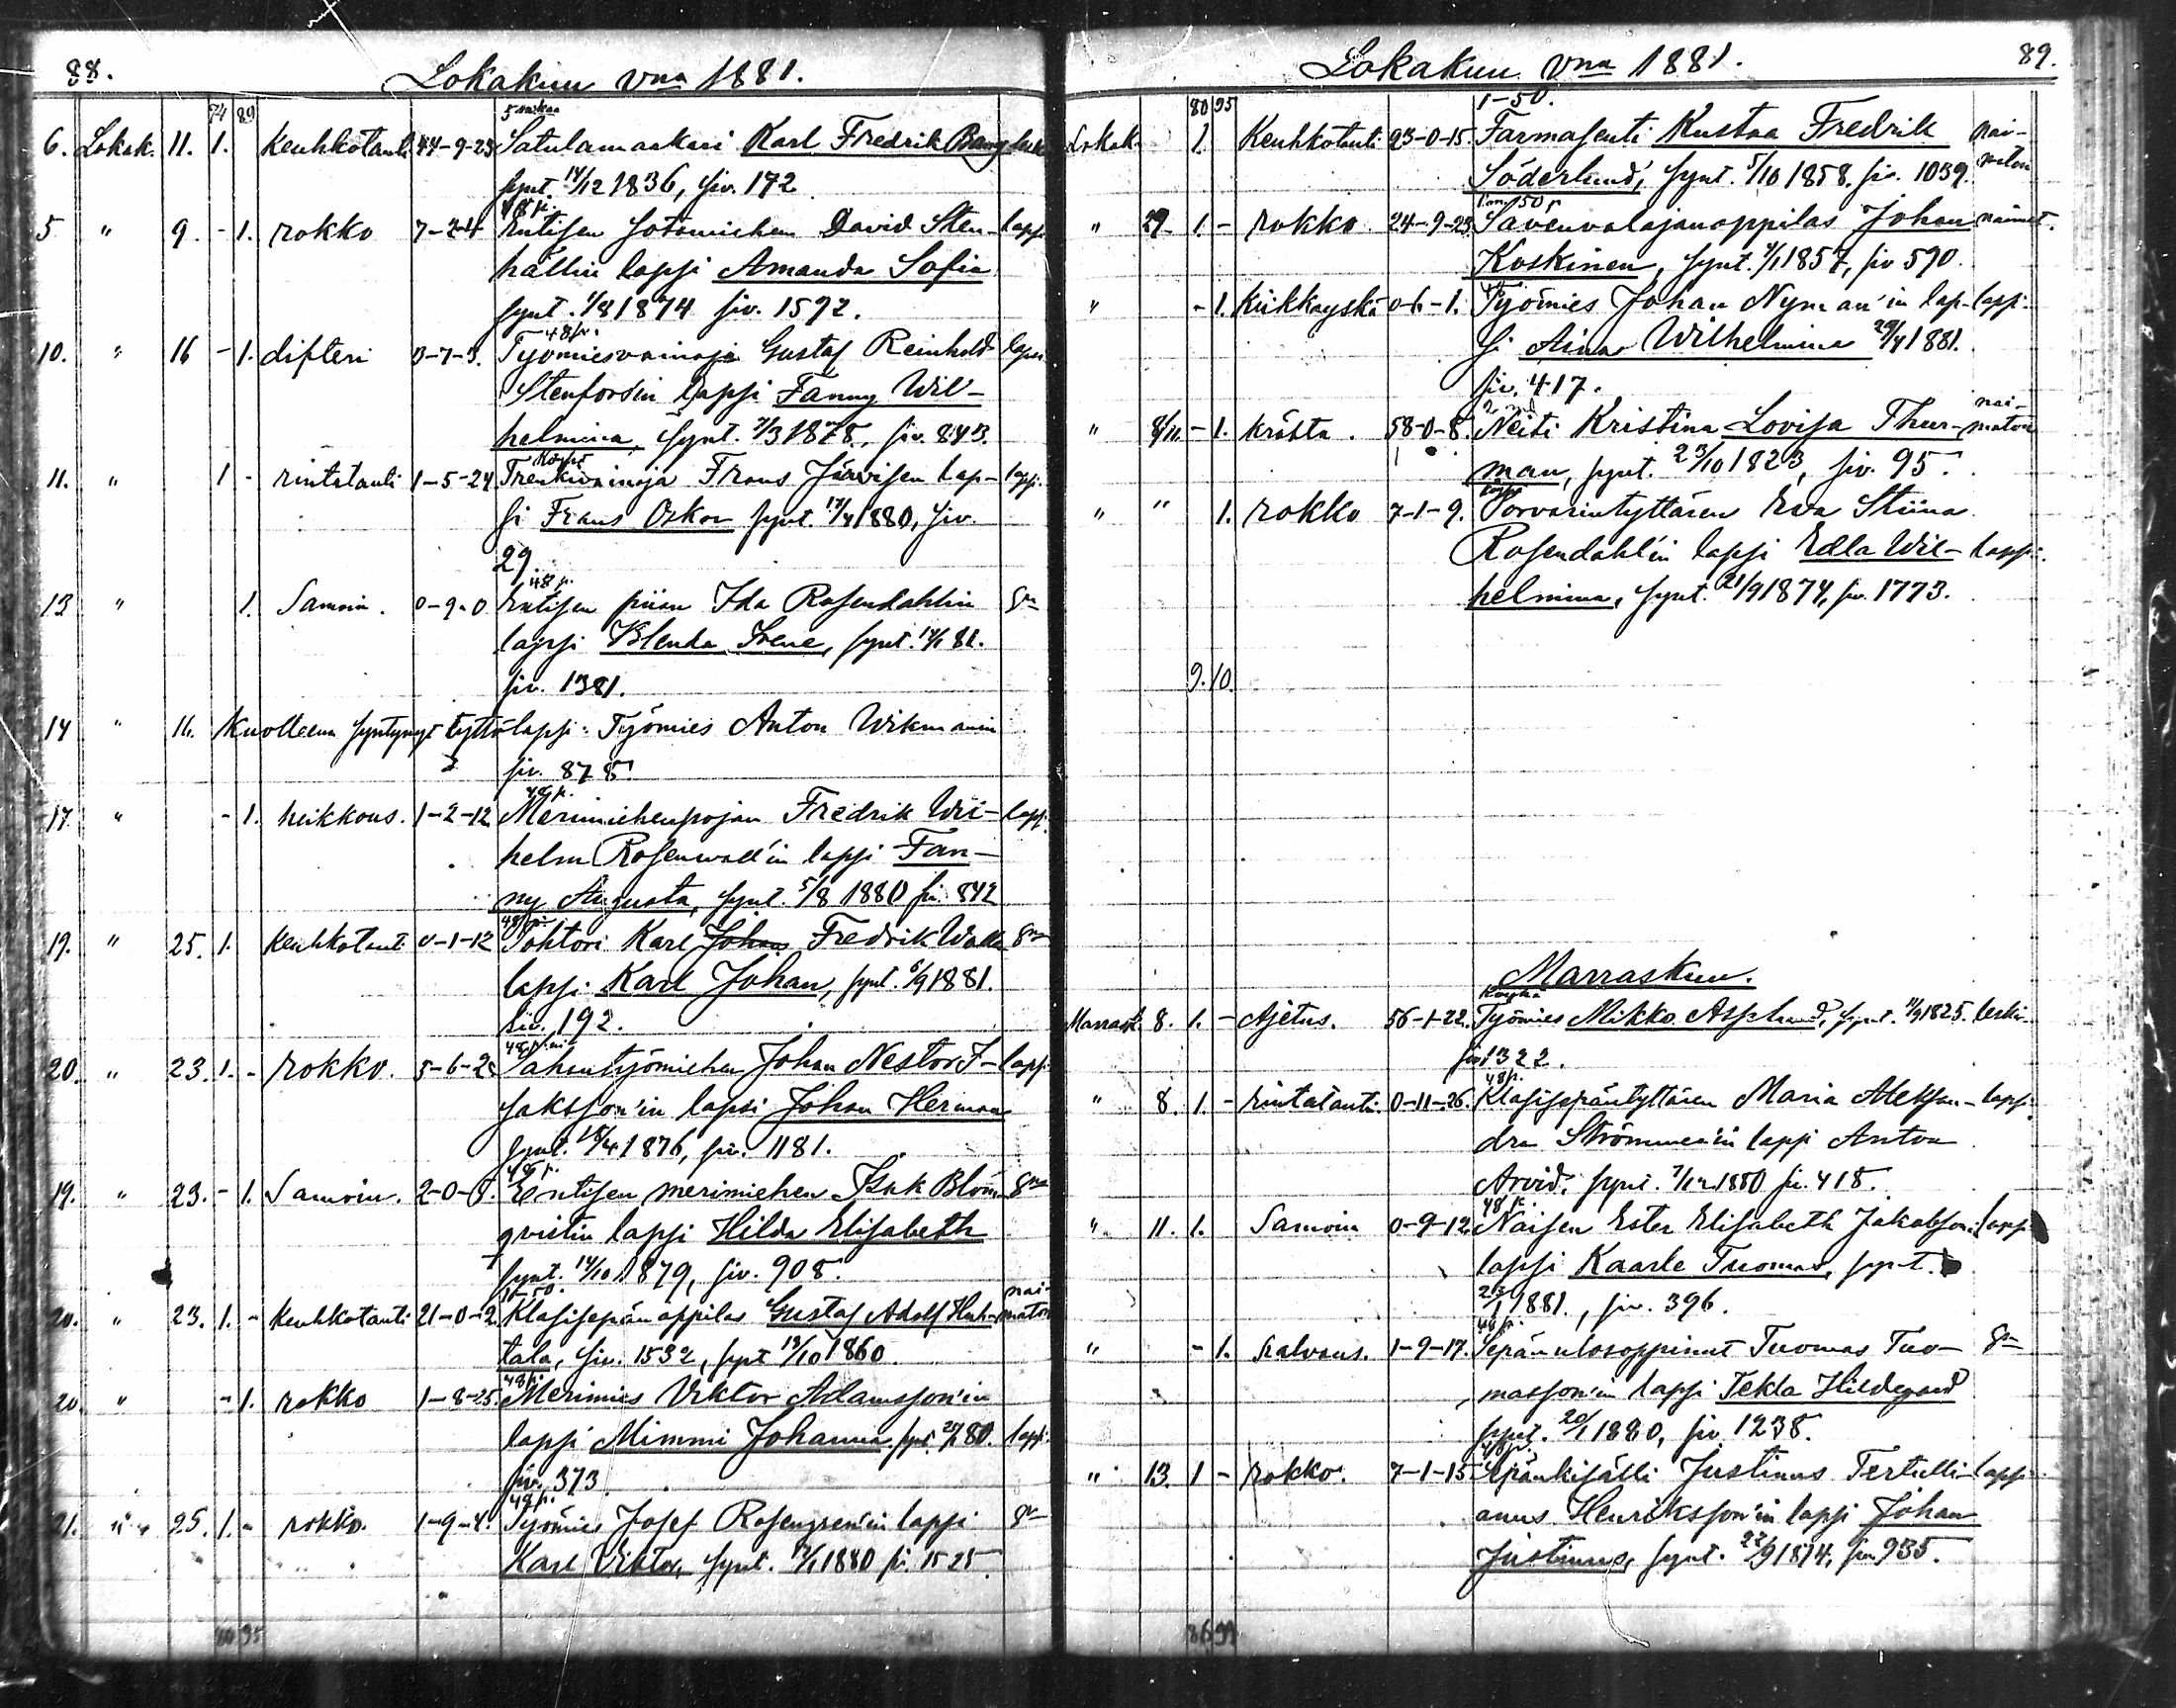 88.
Lokakuu vna 1881.
74 89
6. Lokak. 11. 1. Keuhkotauti 44-9-23 Satulamaakari Karl Fredrik Berg leski
synt. 14/12 1836, siv. 172
48 p.
5 " 9. - 1. rokko 7-2-4 Entisen sotamiehen David Sten- lapsi
hällin lapsi Amanda Sofia
synt. 1/8 1874 siv. 1592.
48 p.
10. " 16 - 1. difteri 3-7-3. Työmiesvainaja Gustaf Reinhold lapsi
Stenforsin lapsi Fanny Wil-
helmina, synt. 7/3 1878, siv. 843.
11. " 1 - rintatauti 1-5-24 Trenkivainaja Frans Järvisen lap- lapsi.
si Frans Oskar synt. 17/4 1880, siv.
29.
48 p.
13 " 1. Samoin. 0-9-0 Entisen piian Ida Rosendahlin
lapsi Blenda Irene, synt. 14/1 81.
siv. 1381.
14 " 16. Kuolleena syntynyt tyttölapsi: Työmies Anton Wikmanin
siv. 878.
48 p.
17. " - 1. heikkous. 1-2-12 Merimiehenpojan Fredrik Wil- lapsi
helm Rosenwall'in lapsi Fan-
ny Augusta, synt. 5/8 1880 siv. 842
48 p.
19. " 25. 1. Keuhkotauti 0-1-12 Tohtori Karl Johan Fredrik
lapsi Karl Johan, synt. 6/9 1881.
siv. 192.
20. " 23. 1. - rokko. 5-6-2 Sahantyömiehen Johan Nestor I- lapsi
saksson'in lapsi Johan Herman
synt. 18/4 1876, siv. 1181.
48 p.
19. " 23. - 1. Samoin. 2-0-5. Entisen merimiehen Isak Blom-
qvistin lapsi Hilda Elisabeth
synt. 14/10 1879, siv. 908.
1-50.
20. " 23. 1. - Keuhkotauti 21-0-2. Klasisepänoppilas Gustaf Adolf Huh- naimaton
tala, siv. 1532, synt 13/10 1860.
48 p.
20. " - 1. rokko 1-8-25. Merimies Viktor Adamsson'in
lapsi Mimmi Johanna synt. 80. lapsi.
siv. 373
48 p.
21. " 25. 1. - rokko. 1-9-8. Työmies Josef Rosengren'in lapsi
Karl Viktor, synt. 1880 siv. 1525.
80 95
Lokakuu vna 1881.
89.
80 95
1-50.
Lokak. 1. Keuhkotauti 23-0-15. Farmasenti Kustaa Fredrik nai-
Söderlund, synt. 5/10 1858. siv. 1039. maton
1 m 50 p
" 29. 1. - rokko 24-9-23. Savenvalajanoppilas Johan naimat.
Koskinen, synt. 1/1 1857, siv 590.
" - 1. Kiikkayskä 0-6-1. Työmies Johan Nyman'in lap- lapsi.
si Aina Wilhelmina 29/4 1881.
siv. 417.
" 8/11. - 1. krösta. 58-0-8. Neiti Kristina Lovisa Thur- naimaton
man, synt. 23/10 1823, siv. 95.
" " 1. rokko 7-1-9. Porvarintyttären Eva Stiina
Rosendahl'in lapsi Edla Wil- lapsi.
helmina, synt. 21/9 1874, siv. 1773.
9. 10.
Marraskuu.
Köyhä
Marrask. 8. 1. - Ajetus. 56-1-22. Työmies Mikko Asplund, synt. 1825. leski.
siv 1322.
48 p.
" 8. 1. - rintatauti. 0-11-26. Klasisepäntyttären Maria Aleksan- lapsi.
dra Strömmen'in lapsi Anton
Arvid, synt. 7/12 1880 siv. 418.
48 p.
" 11. 1. Samoin 0-9-12 Naisen Ester Elisabeth Jakobson. lapsi
lapsi Kaarle Tuomas, synt.
23/1 1881., siv. 396.
48 p.
" - 1. halvaus. 1-9-17. Sepänulosoppinut Tuomas Tuo-
masson'in lapsi Tekla Hildegard
synt. 20/1 1880, siv 1238.
48 p.
" 13. 1 - rokko. 7-1-15 Sepänkisälli Justinus Tertulli- lapsi
anus Henriksson'in lapsi Johan
Justinus, synt. 22/9 1874, siv 935.
86 99